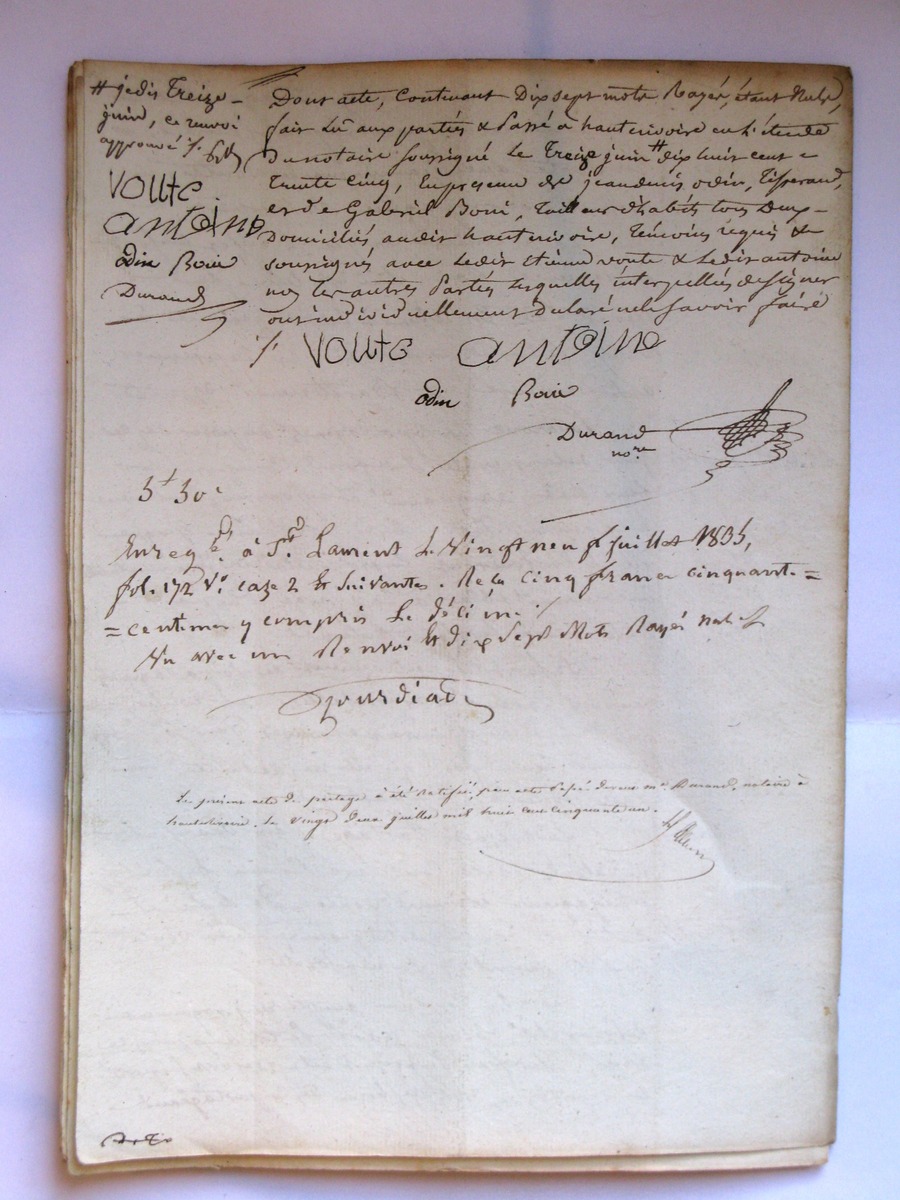 # je dis treize
juin, ce renvoi
approuvé /.
voute
antoine
odin Boui
Durand
Dont acte, contenant Dix sept mots Rayés, étant Nuls,
fait Lû aux parties & Passé a hauterivoire en l'étude
Du notaire soussigné Le Treize juin # dix huit cent
Trente Cinq, En presence de jean denis odin, Tisserand,
et de Gabriel Boui, Tailleur d'habits tous Deux
Domiciliés, audit hauterivoire, témoins requis &
soussignés avec Ledit Etienne voute & Ledit antoine
non les autres Parties lesquelles interpellées de signer
ont individuellement Declaré ne le Savoir faire
/. voute antoine
odin Boui
Durand
no.re
5f 50c
Enreg.é à St. Laurent Le Vingt neuf juillet 1835,
fol. 172 Vo. case 2 Et Suivantes. Reçu cinq francs cinquante =
= centimes y compris Le décime /.
Vu avec un Renvoi Et dix Sept Mots Rayés nuls
Jourdiad
Le présent acte de partage à été Ratifié, par acte Passé devant me. Durand, notaire à
hauterivoire, Le vingt deux juillet mil huit cent cinquante un.